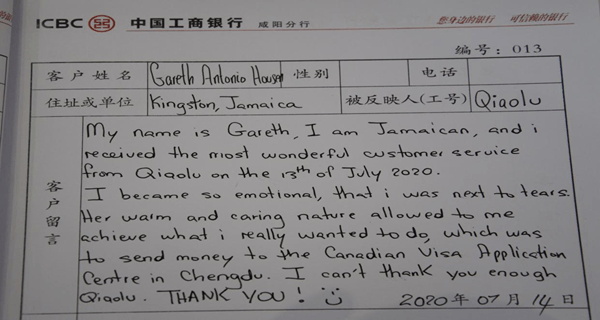 ICBC 中国工商银行 咸阳分行 您身边的银行 可信赖的银行
编号：013
客户姓名 Gareth Antonio Housen 性别 电话
住址或单位 Kingston, Jamaica 被反映人(工号) Qiaolu
客户留言
My name is Gareth, I am Jamaican, and i
received the most wonderful customer service
from Qiaolu on the 13th of July 2020.
I became so emotional, that i was next to tears.
Her warm and caring nature allowed to me
achieve what i really wanted to do, which was
to send money to the Canadian Visa Application
Centre in Chengdu. I can't thank you enough
Qiaolu. THANK YOU!
2020年07月14日